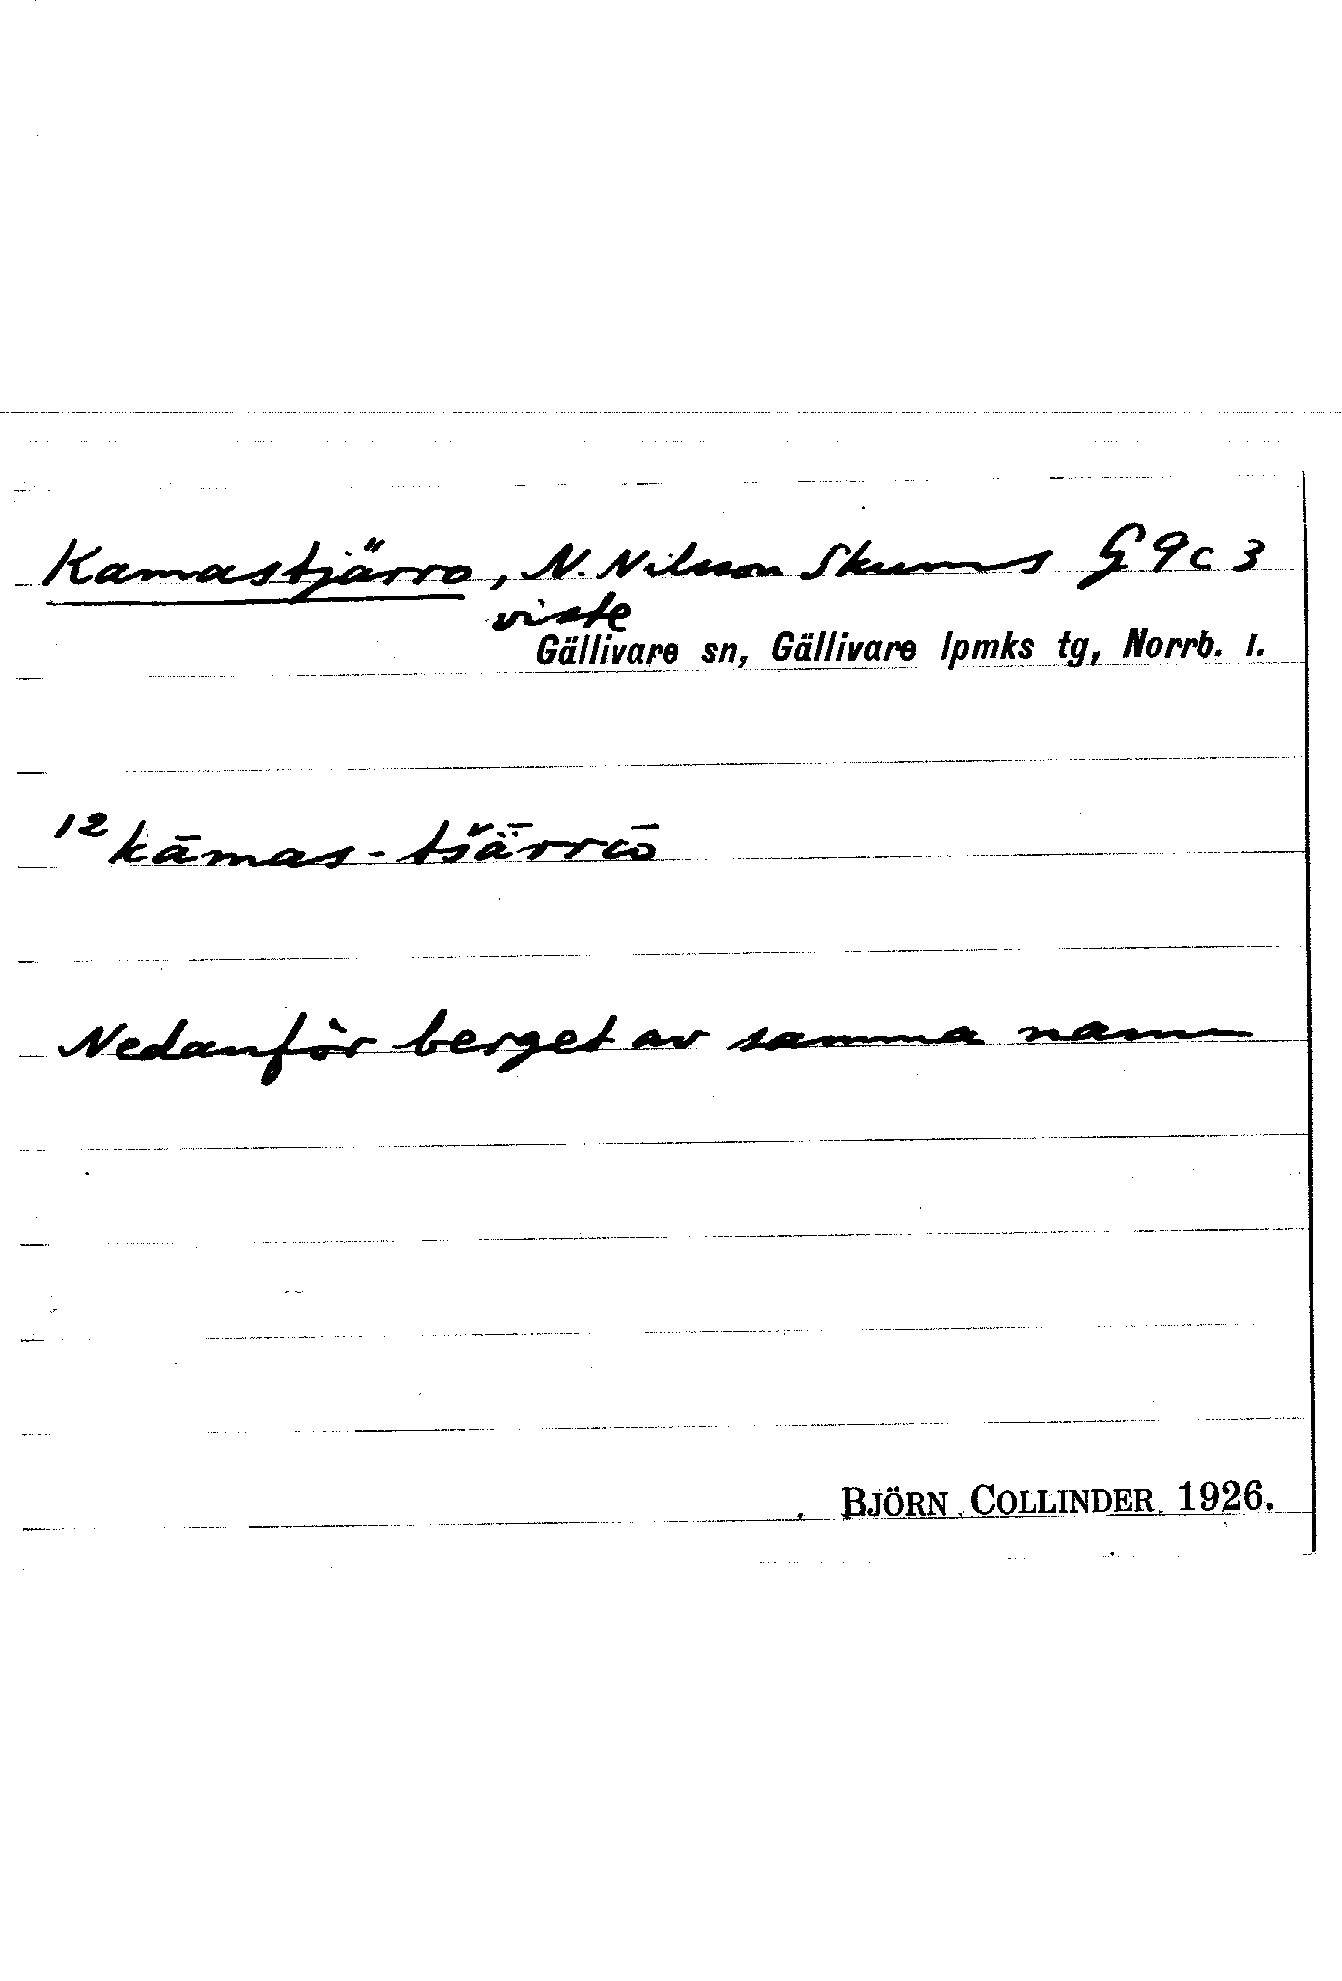 Kamastjärro, N. Nilsson Skums G 9 c 3
viste
Gällivare sn, Gällivare lpmks tg, Norrb. l.
12 kāmas-tšǟrrō
Nedanför berget av samma namn
BJÖRN COLLINDER 1926.